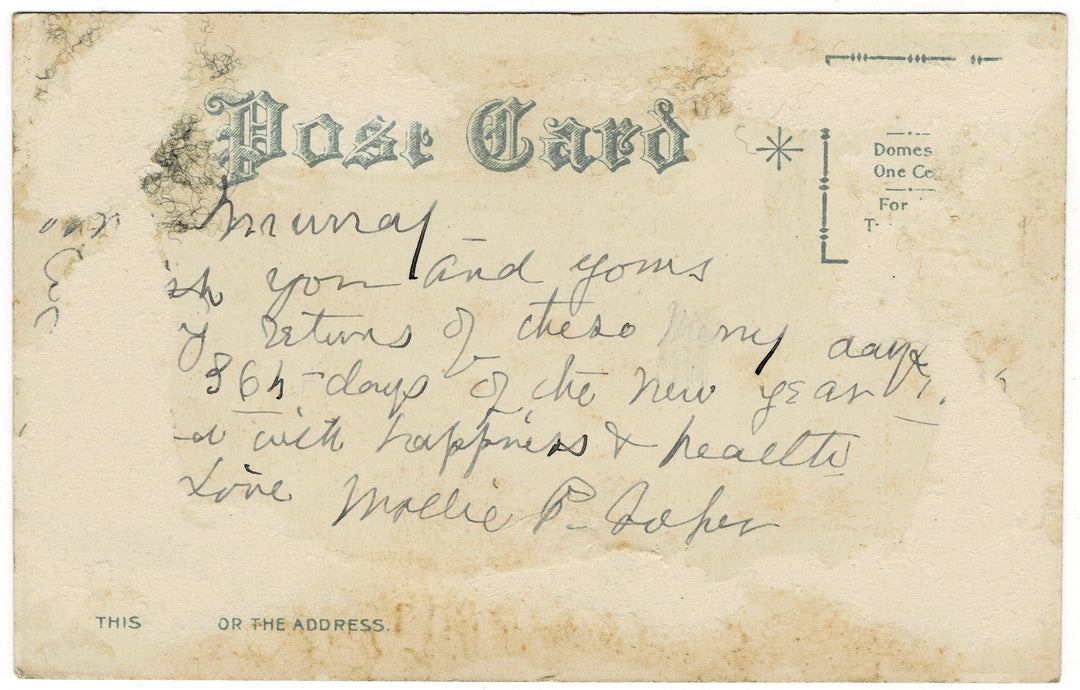 Post Card
Domes
One Ce
For
T
Murray
sh you and yours
y returns of these Merry days
365 days of the New Year
d with happiness & health
Love Mollie P.
THIS OR THE ADDRESS.